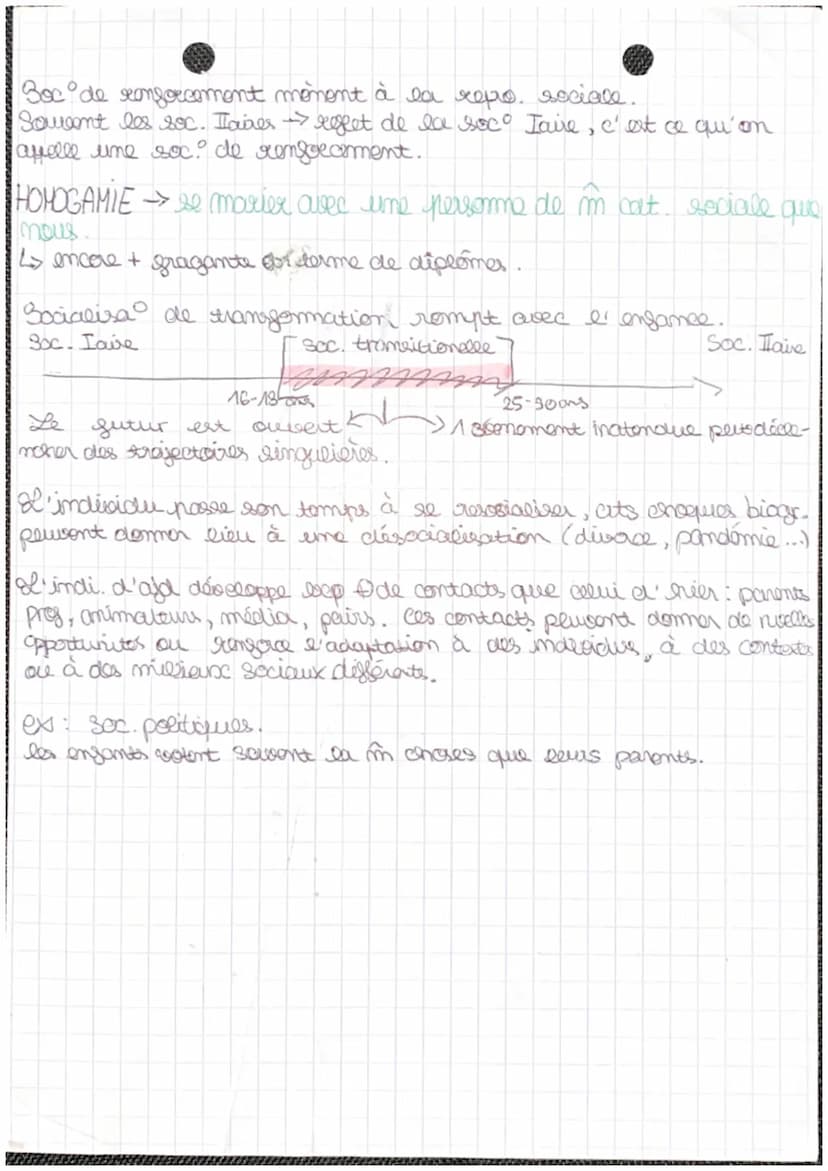 Soc° de renforcement mènent à la repro. sociale.
Souvent les soc. IIaires → reflet de la soc° Iaire, c'est ce qu'on
appelle une soc° de renforcement.
HOMOGAMIE → se marier avec une personne de m̂ cat. sociale que
nous.
↳ encore + fragante en terme de diplômes.
Socialisa° de transformation rompt avec l'enfance.
Soc. Iaire [soc. transitionelle] Soc. IIaire
16-18 ans 25-30 ans
Le futur est ouvert ↙ ↘ 1 évènement inatendue peut déclen-
cher des trajectoires singulières.
L'individu passe son temps à se resocialiser, crts choques biogr.
peuvent donner lieu à une désocialisation (divorce, pandémie...)
L'indi. d'ajd développe bcp ⊕ de contacts que celui d'hier : parents
prof, animateurs, média, pairs. Ces contacts peuvent donner de nvelles
opportunités ou renforce l'adaptation à des individus, à des contexts
ou à des milieux sociaux différents.
ex : soc. politiques.
les enfants votent souvent la m̂ choses que leurs parents.